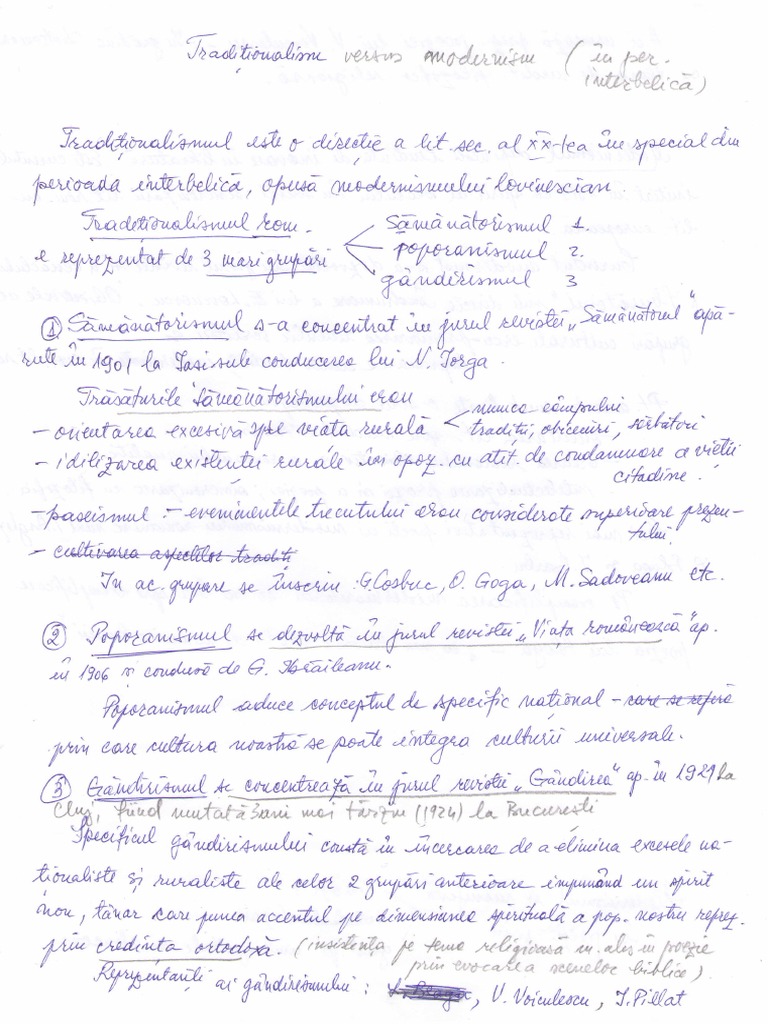 Tradiționalism versus modernism (în per. interbelică)
Tradiționalismul este o direcție a lit. sec. al XX-lea în special din
perioada interbelică, opusă modernismului lovinescian.
Tradiționalismul rom.
e reprezentat de 3 mari grupări
Sămănătorismul 1.
poporanismul 2.
gândirismul 3
① Sămănătorismul s-a concentrat în jurul revistei „Sămănătorul" apă-
rute în 1901 la Iasi sub conducerea lui N. Iorga.
Trăsăturile sămănătorismului erau
- orientarea excesivă spre viata rurală
munca câmpului
tradiții, obiceiuri, sărbători
- idilizarea existenței rurale în opoz. cu atît de condamnare a vieții
citadine.
- paseismul - evenimentele trecutului erau considerate superioare prezen-
tului.
- cultivarea aspectelor tradiți
În ac. grupare se înscriu : G Cosbuc, O. Goga, M. Sadoveanu etc.
② Poporanismul se dezvoltă în jurul revistei „Viata românească" ap.
în 1906 și condusă de G. Ibrăileanu.
Poporanismul aduce conceptul de specific național - care se referă
prin care cultura noastră se poate integra culturii universale.
③ Gândirismul se concentrează în jurul revistei „Gândirea" ap. în 1921 la
Cluj, fiind mutată 3 ani mai târziu (1924) la București
Specificul gândirismului constă în încercarea de a elimina excesele na-
ționaliste și ruraliste ale celor 2 grupări anterioare impunând un spirit
nou, tânar care punea accentul pe dimensiunea spirituală a pop. nostru reprez.
prin credința ortodoxă. (insistența pe tema religioasă în ales în poezie
prin evocarea scenelor biblice)
Reprezentanți ai gândirismului : L. Blaga, V. Voiculescu, I. Pillat